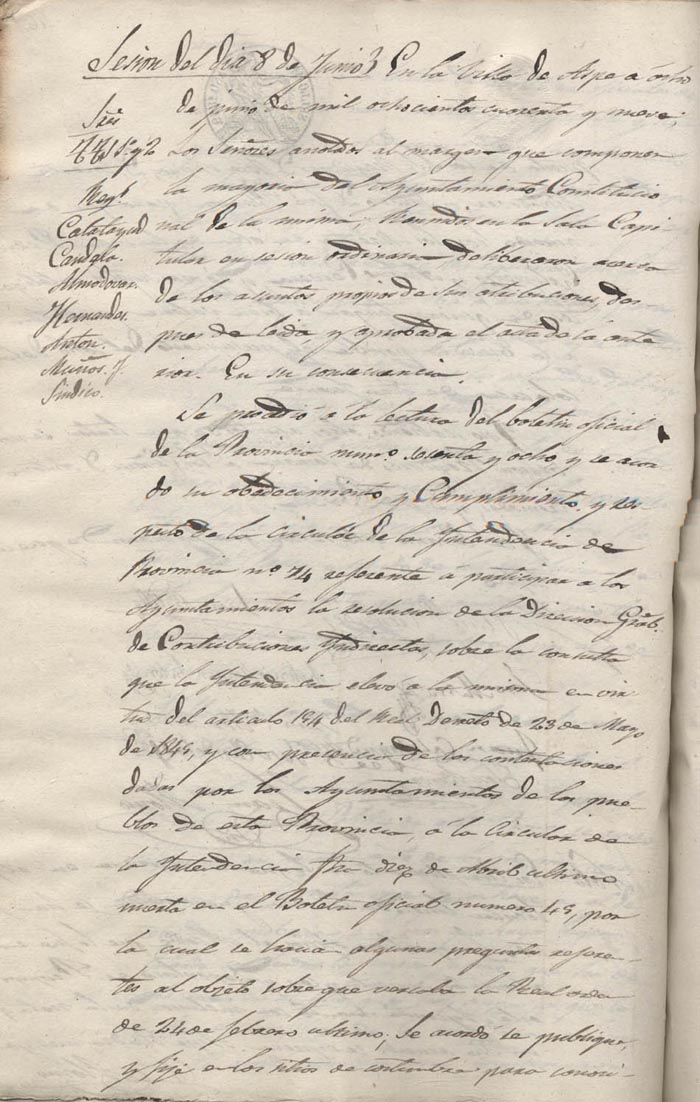 Sesion del dia 8 de Junio} En la Villa de Aspe a ocho
de junio de mil ochocientos cuarenta y nueve;
Sres
1º y 2
Regs
Catalayud
Candela.
Almodovar.
Hernandez.
Anton.
Muños. y
Sindico.
Los Señores anotados al margen que componen
la mayoria del Ayuntamiento Constitucio
nal de la misma, Reunidos en la Sala Capi-
tular en sesion ordinaria deliberaron acerca
de los asuntos propios de sus atribuciones, des
pues de leida, y aprobada el acta de la ante
rior. En su consecuencia,
Se procedió á la lectura del boletin oficial
de la Provincia numo. sesenta y ocho y se acor
do su obedecimiento, y Cumplimiento, y res-
peto de la circular de la Intendencia de
Provincia nº 74 referente á participar a los
Ayuntamientos la resolucion de la Direccion Gral.
de Contribuciones Yndirectas, sobre la consulta
que la Intendencia elevó á la misma en vir-
tud del articulo 154 del Real Decreto de 23 de Mayo
de 1845, y con presencia de las contestaciones
dadas por los Ayuntamientos de los pue-
blos de esta Provincia, á la Circular de
la Intendencia fha diez de Abril ultimo
inserta en el Boletin oficial numero 45, por
la cual se hacia algunas preguntas refere-
tes al objeto sobre que versaba la Real orden
de 24 de febrero ultimo; Se acordó se publique,
y fije en los sitios de costumbre para conoci-